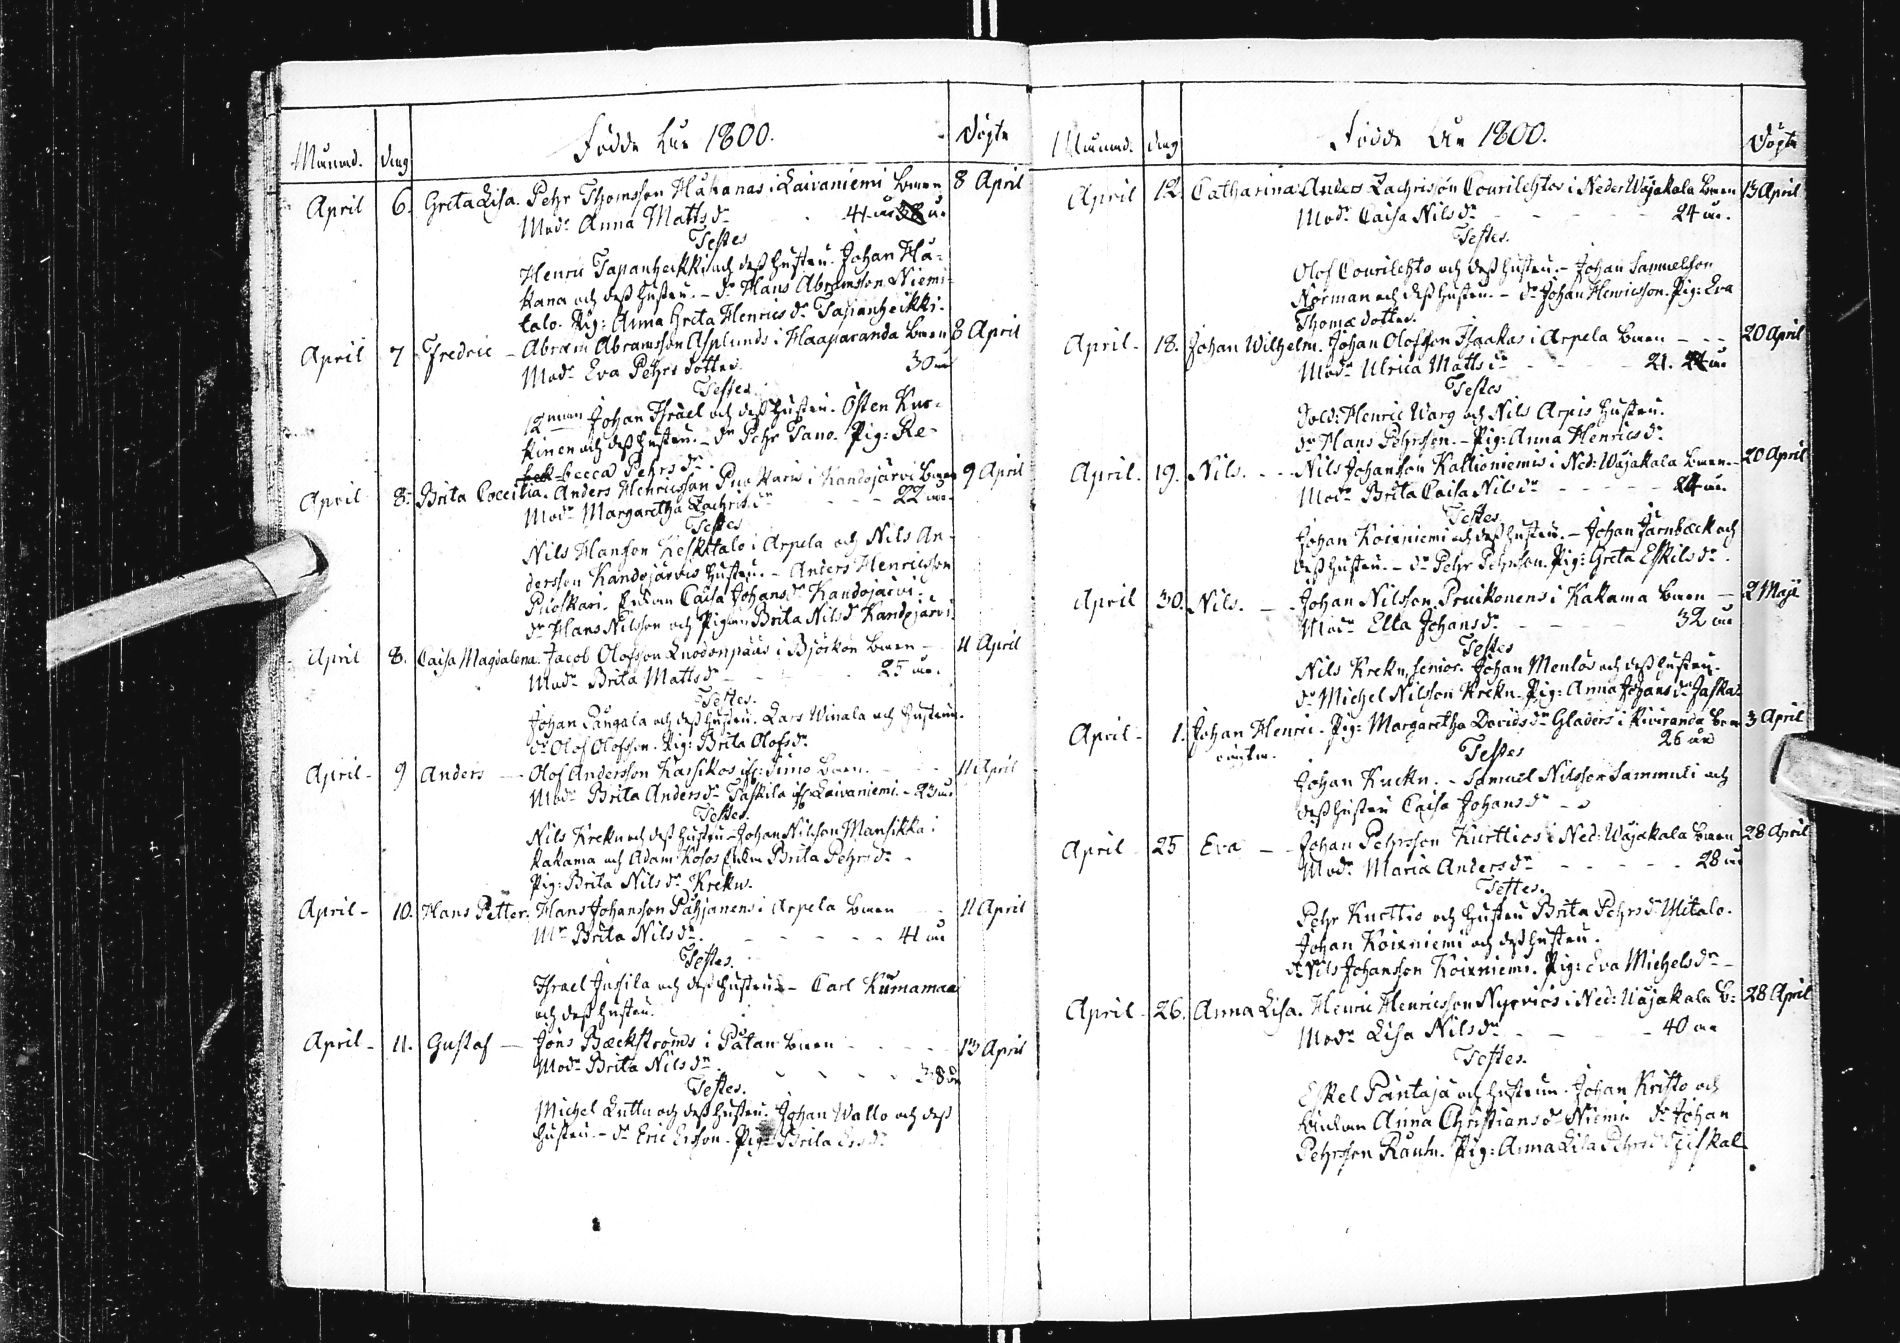 Födde åhr 1800.
Månad. dag Döpte
April 6. Greta Lisa. Pehr Thomsson Hakanas i Laivaniemi barn 8 April
Modr Anna Matts dr 41 år
Testes
Henric Tapanheikki och deß hustru. Johan Ha-
kana och deß hustru. - dr Hans Abramsson Niemi-
talo. Pig: Anna Greta Henrics dr Tapanheikki.
April 7 Fredric - Abram Abramsson Asplunds i Haaparanda barn 8 April
Modr Eva Pehrs dotter. 30 år
Testes
12 man Johan Israel och deß hustru. Östen Kur-
kinen och deß hustru. - dr Pehr Tano. Pig: Re-
becca Pehrs dr
April 8. Brita Coecilia. Anders Henricsson Puoskaris i Kandojärvi barn 9 April
Modr Margaretha Zachris dr 22 år
Testes
Nils Hansson Keskitalo i Arpela och Nils An-
dersson Kandojärvis hustru. - Anders Henricsson
Puoskari. Enkan Caisa Johans dr Kandojärvi.
dr Hans Nilsson och Pigan Brita Nils dr Kandojärvi.
April 8. Caisa Magdalena. Jacob Olofsson Knodonpääs i Björkön barn - 11 April
Modr Brita Matts dr 25 år.
Testes.
Johan Laugala och deß hustru. Lars Winala och hustrun.
dr Olof Olofsson. Pig: Brita Olofs dr
April - 9 Anders - Olof Andersson Karsikos if: Simo barn. 11 April
Modr Brita Anders dr Taskila if: Laivaniemi. - 23 år
Testes.
Nils Krekn och deß hustru - Johan Nilsson Mansikka i
Kakama och Adam Kosos Enka Brita Pehrs dr -
Pig: Brita Nils dr Krekn.
April - 10. Hans Petter. Hans Johansson Pahjanens i Arpela barn 11 April
Mr Brita Nils dr. 41 år
Testes.
Israel Jussila och deß hustru - Carl Kurnamaa
och deß hustru.
April - 11. Gustaf - Jöns Bæckströms i Patan barn 13 April
Modr Brita Nils dr 38 år
Testes.
Michel Luttu och deß hustru. Johan Wallo och deß
hustru. - dr Eric Ersson. Pig: Brita Ers dr
Födde åhr 1800.
Månad. dag Döpte
April 12. Catharina Anders Zachrisson Courilehtos i Neder Wojakala barn 13 April
Modr Caisa Nils dr 24 år.
Testes.
Olof Courilehto och deß hustru. - Johan Samuelsson
Norman och deß hustru. - dr Johan Henricsson. Pig: Eva
Thomæ dotter.
April - 18. Johan Wilhelm. Johan Olofsson Isaakas i Arpela barn - - 20 April
Modr Ulrica Matts dr 21. år
Testes
Sold: Henric Warg och Nils Arpis hustru.
dr Hans Pehrsson. - Pig: Anna Henrics dr
April. 19. Nils. - - Nils Johansson Kallioniemis i Ned: Wojakala barn. - 20 April
Modr Brita Caisa Nils dr 24 år.
Testes
Johan Koivuniemi och deß hustru. - Johan Järnbæck och
deß hustru. - dr Pehr Pehrsson. Pig: Greta Eskils dr.
April 30. Nils. - Johan Nilsson Pruikonens i Kakama barn - 2 Maji
Modr Ella Johans dr 32 år
Testes
Nils Krekn, senior. Johan Menlös och deß hustru.
dr Michel Nilsson Krekn. Pig: Anna Johans dr Jaskal
April - 1. Johan Henric. Pig: Margaretha Davids dr Gladers i Kiviranda barn 3 April
oägta. 26 år
Testes
Johan Kuckn. - Samuel Nilsson Sammuli och
deß hustru Caisa Johans dr
April - 25 Eva - Johan Pehrsson Kurttios i Ned: Wojakala barn 28 April
Modr Maria Anders dr 28 år
Testes.
Pehr Kurttio och hustru Brita Pehrs dr Ylitalo.
Johan Koivuniemi och deß hustru.
dr Nils Johansson Koivuniemi. Pig: Eva Michels dr -
April - 26. Anna Lisa. Henric Henricsson Nyqvists i Ned: Wojakala b: 28 April
Modr Lisa Nils dr 40 år
Testes.
Eskel Pantaja och hustrun. Johan Kristo och
Enkan Anna Christians dr Niemi dr Johan
Pehrsson Rautu. Pig: Anna Lisa Pehrs dr